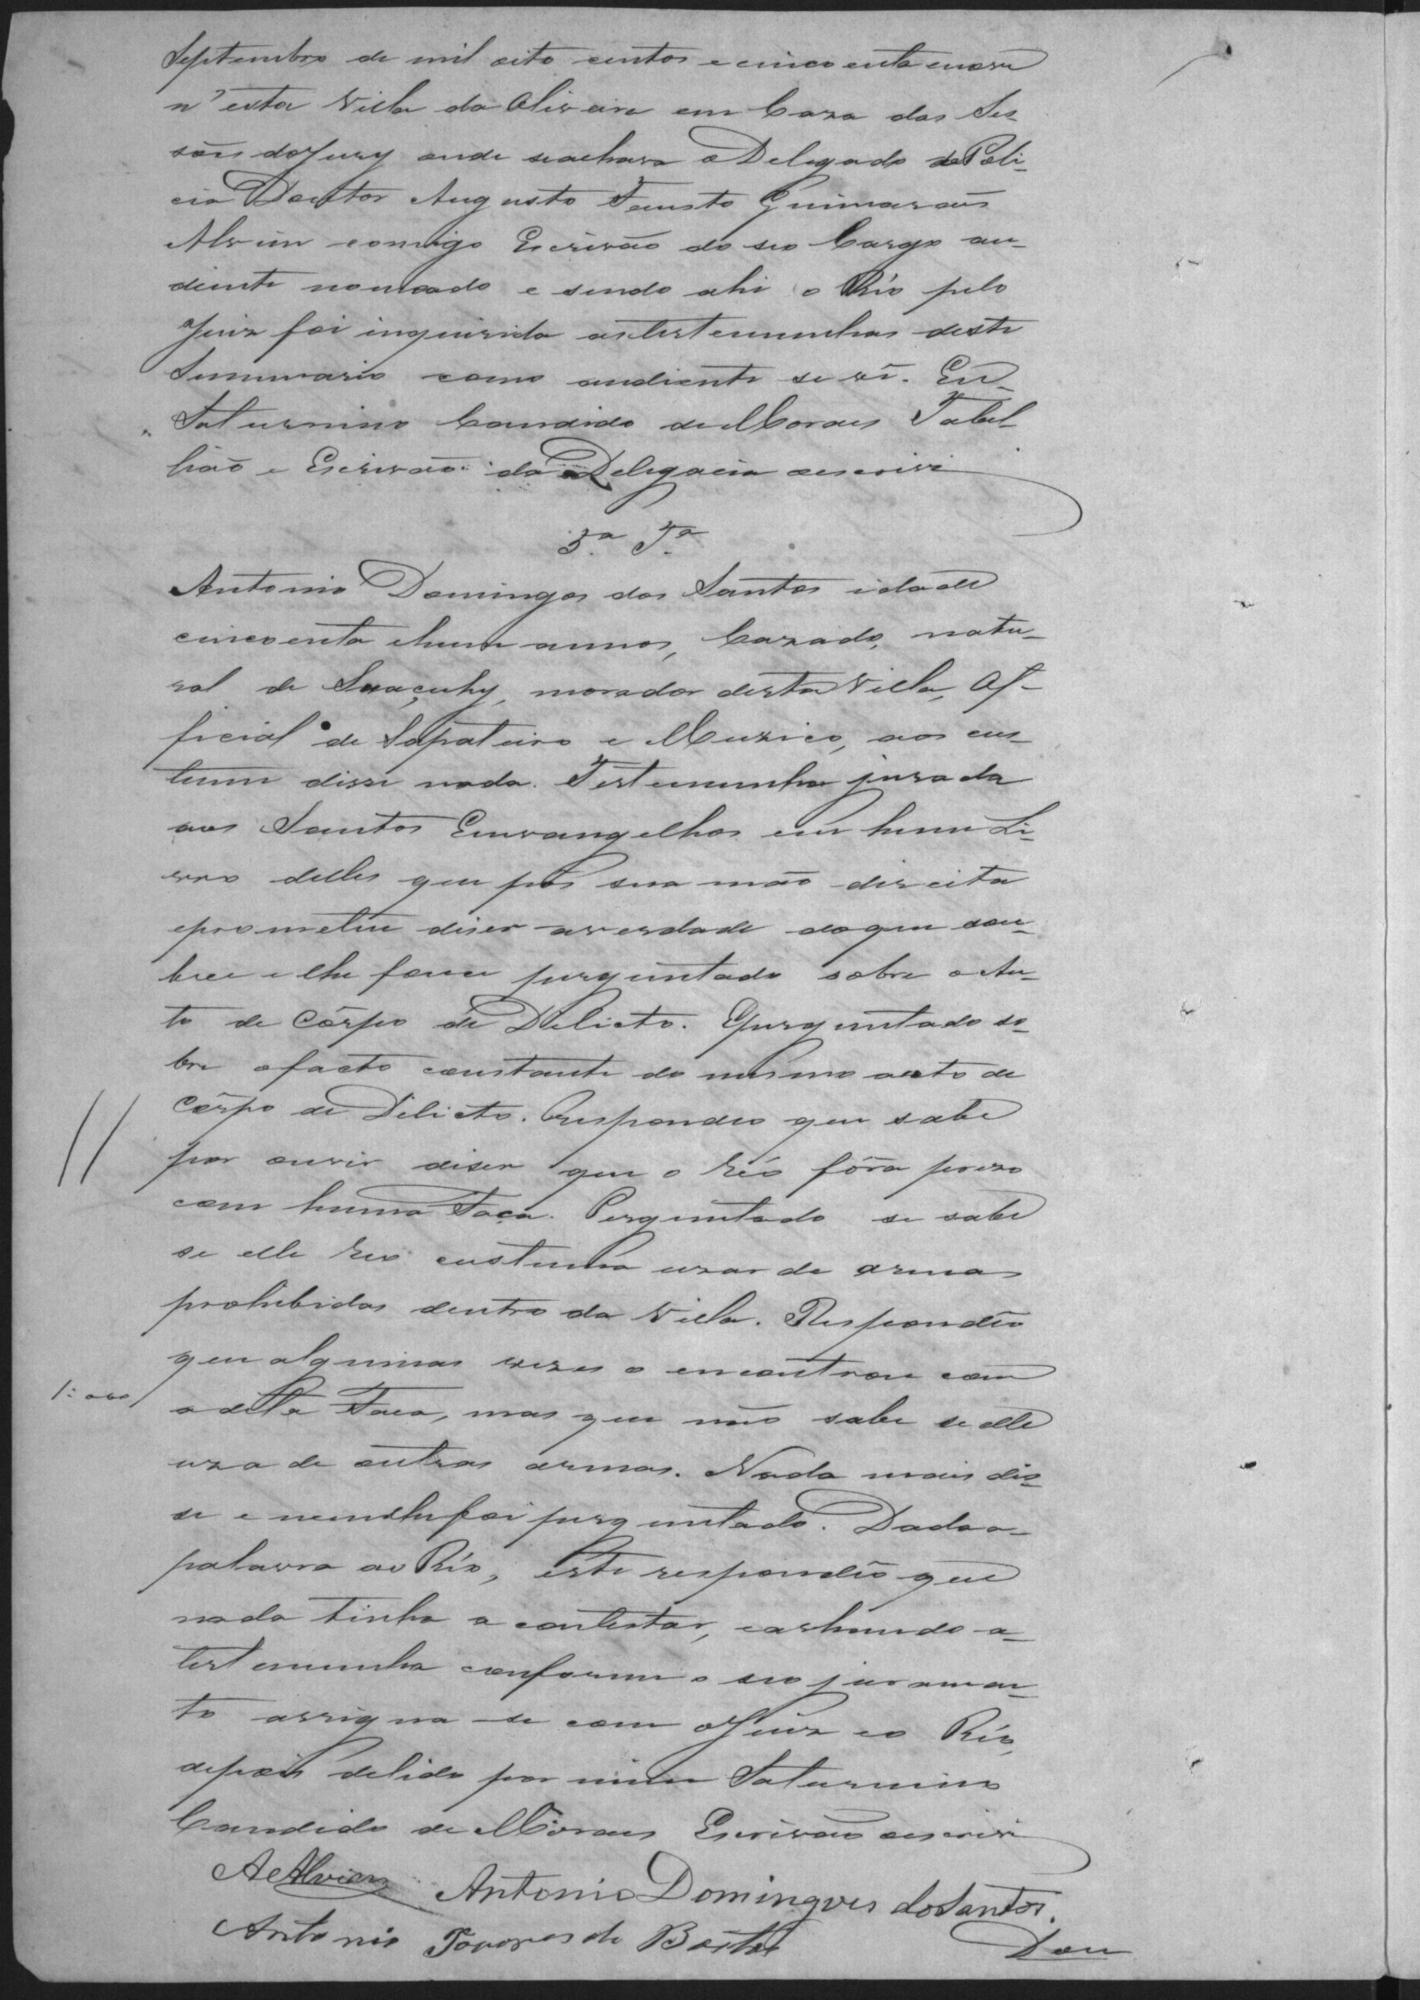 Septembro de mil oito centos e cincoenta enove
n'esta Villa da Oliveira em Caza das Ses
sões doJury onde seachava o Delegado de Poli-
cia Doutor Augusto Fausto Guimarães
Alvim comigo Escrivão do seo Cargo au-
diente nomeado e sendo ahi o Réo pelo
Juiz foi inquirida astestemunhas deste
Summario como audiente se vê. Eu
Saturnino Candido de Moraes Tabel-
lião e Escrivão da Delegacia oescrivi
3.ª T.ª
Antonio Domingos dos Santos idade
cincoenta ehum annos, Cazado, natu-
ral de Suaçuhy, morador desta Villa, Of-
ficial de Sapateiro e Muzico, aos cus-
tumes disse nada. Testemunha jurada
aos Santos Envangelhos em hum Li-
vro delles que pôs sua mão direita
eprometeu diser averdade doque sou-
besse elhe fosse perguntado sobre o Au-
to de Côrpo de Delicto. Eperguntado so-
bre ofacto constante do mesmo auto de
Côrpo de Delicto. Respondeo que sabe
por ouvir diser que o Réo fôra prezo
com huma Faca. Perguntado se sabe
se elle Reo custuma uzar de armas
prohibidas dentro da Villa. Respondêo
que algumas vezes o encontrou com
a dita Faca, mas que não sabe se elle
uza de outras armas. Nada mais dis-
se e nemlhefoi perguntado. Dada a-
palavra ao Réo, este respondêo que
nada tinha a contestar, eachando a-
testemunha conforme o seo juramen-
to assigna-se com oJuiz eo Réo,
depois delido por mim Saturnino
Candido de Moraes Escrivão oescrivi
AeAlvim Antonio Domingues dosSantos.
Antonio Tavares de
Dou